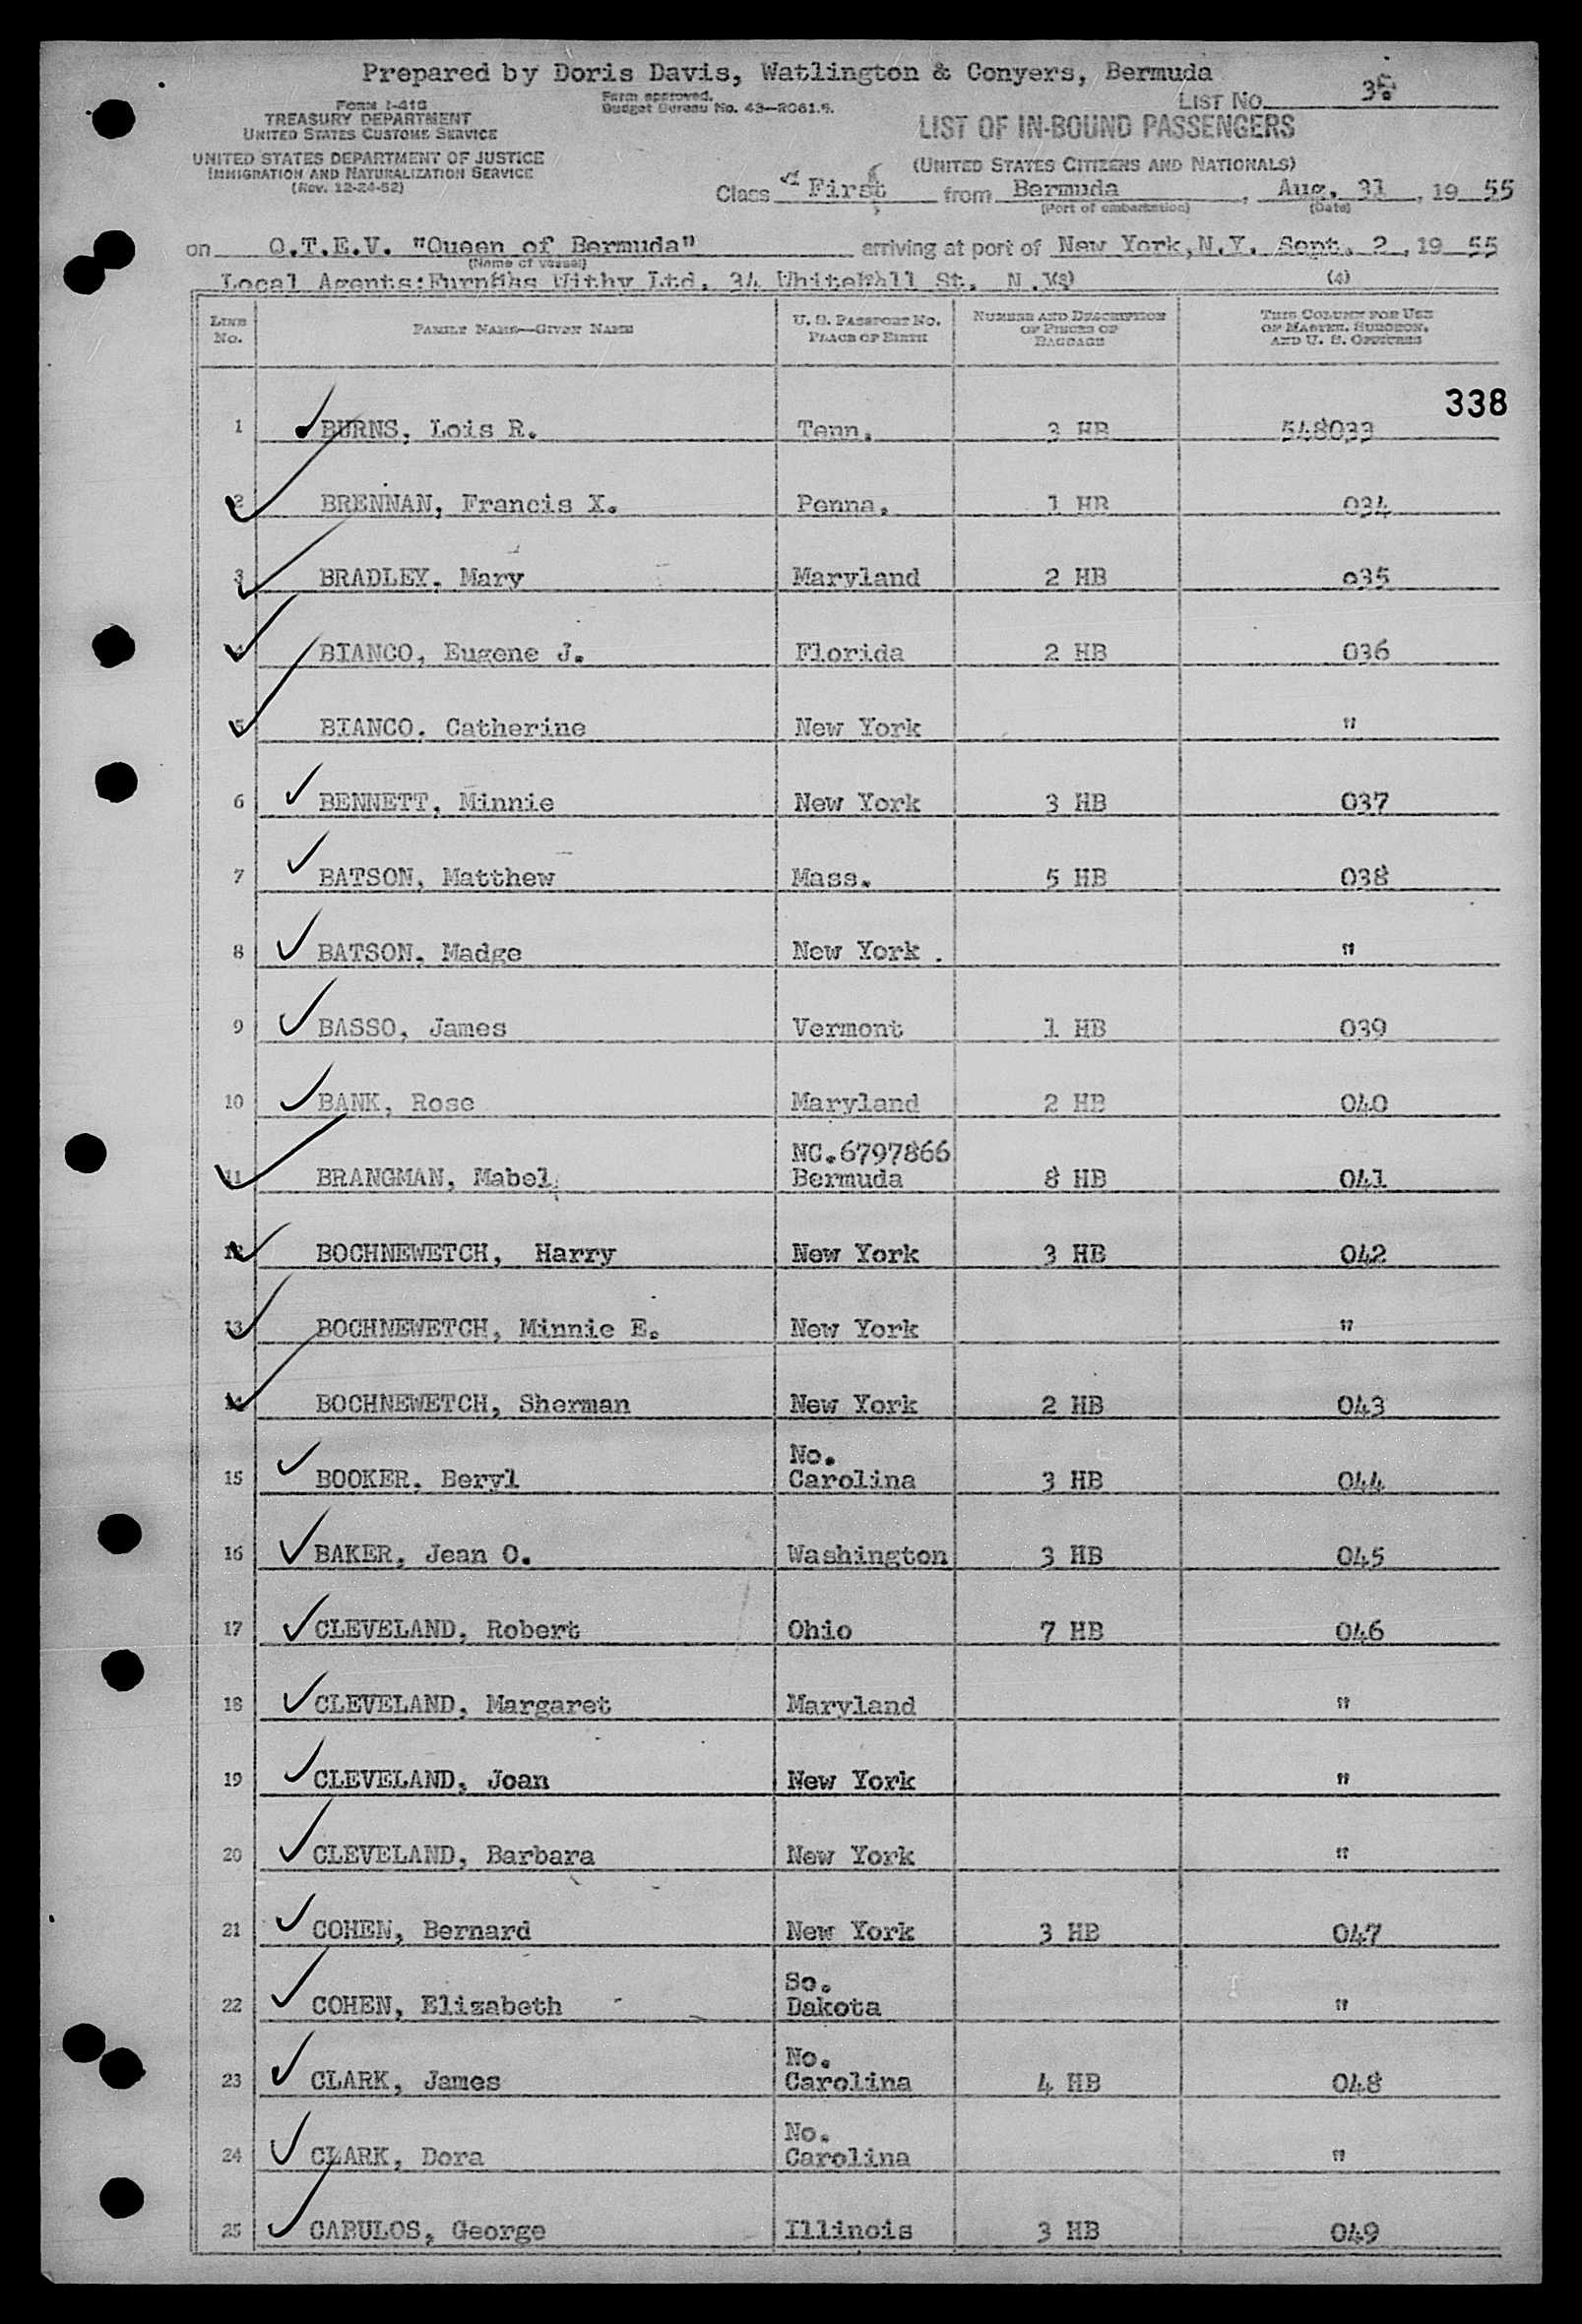 Prepared by Doris Davis, Watlington & Conyers, Bermuda
Form I-416
TREASURY DEPARTMENT
UNITED STATES CUSTOMS SERVICE
UNITED STATES DEPARTMENT OF JUSTICE
IMMIGRATION AND NATURALIZATION SERVICE
(Rev. 12-24-52)
Form approved.
Budget Bureau No. 43—R061.5.
LIST No.
LIST OF IN-BOUND PASSENGERS
(UNITED STATES CITIZENS AND NATIONALS)
Class First from Bermuda, Aug. 31, 19 55
(Port of embarkation) (Date)
on Q.T.E.V. "Queen of Bermuda" arriving at port of New York, N.Y. Sept. 2, 19 55
(Name of vessel)
Local Agents: Furness Withy Ltd. 34 Whitehall St. N.Y. (3) (4)
LINE No. FAMILY NAME—GIVEN NAME U. S. PASSPORT NO. PLACE OF BIRTH NUMBER AND DESCRIPTION OF PIECES OF BAGGAGE THIS COLUMN FOR USE OF MASTER, SURGEON, AND U. S. OFFICERS
338
1 BURNS, Lois R. Tenn. 3 HB 548033
2 BRENNAN, Francis X. Penna. 1 HB 034
3 BRADLEY, Mary Maryland 2 HB 035
4 BIANCO, Eugene J. Florida 2 HB 036
5 BIANCO, Catherine New York "
6 BENNETT, Minnie New York 3 HB 037
7 BATSON, Matthew Mass. 5 HB 038
8 BATSON, Madge New York . "
9 BASSO, James Vermont 1 HB 039
10 BANK, Rose Maryland 2 HB 040
NC.6797866
11 BRANGMAN, Mabel Bermuda 8 HB 041
12 BOCHNEWETCH, Harry New York 3 HB 042
13 BOCHNEWETCH, Minnie E. New York "
14 BOCHNEWETCH, Sherman New York 2 HB 043
No.
15 BOOKER, Beryl Carolina 3 HB 044
16 BAKER, Jean O. Washington 3 HB 045
17 CLEVELAND, Robert Ohio 7 HB 046
18 CLEVELAND, Margaret Maryland "
19 CLEVELAND, Joan New York "
20 CLEVELAND, Barbara New York "
21 COHEN, Bernard New York 3 HB 047
So.
22 COHEN, Elizabeth Dakota "
No.
23 CLARK, James Carolina 4 HB 048
No.
24 CLARK, Dora Carolina "
25 CABULOS, George Illinois 3 HB 049